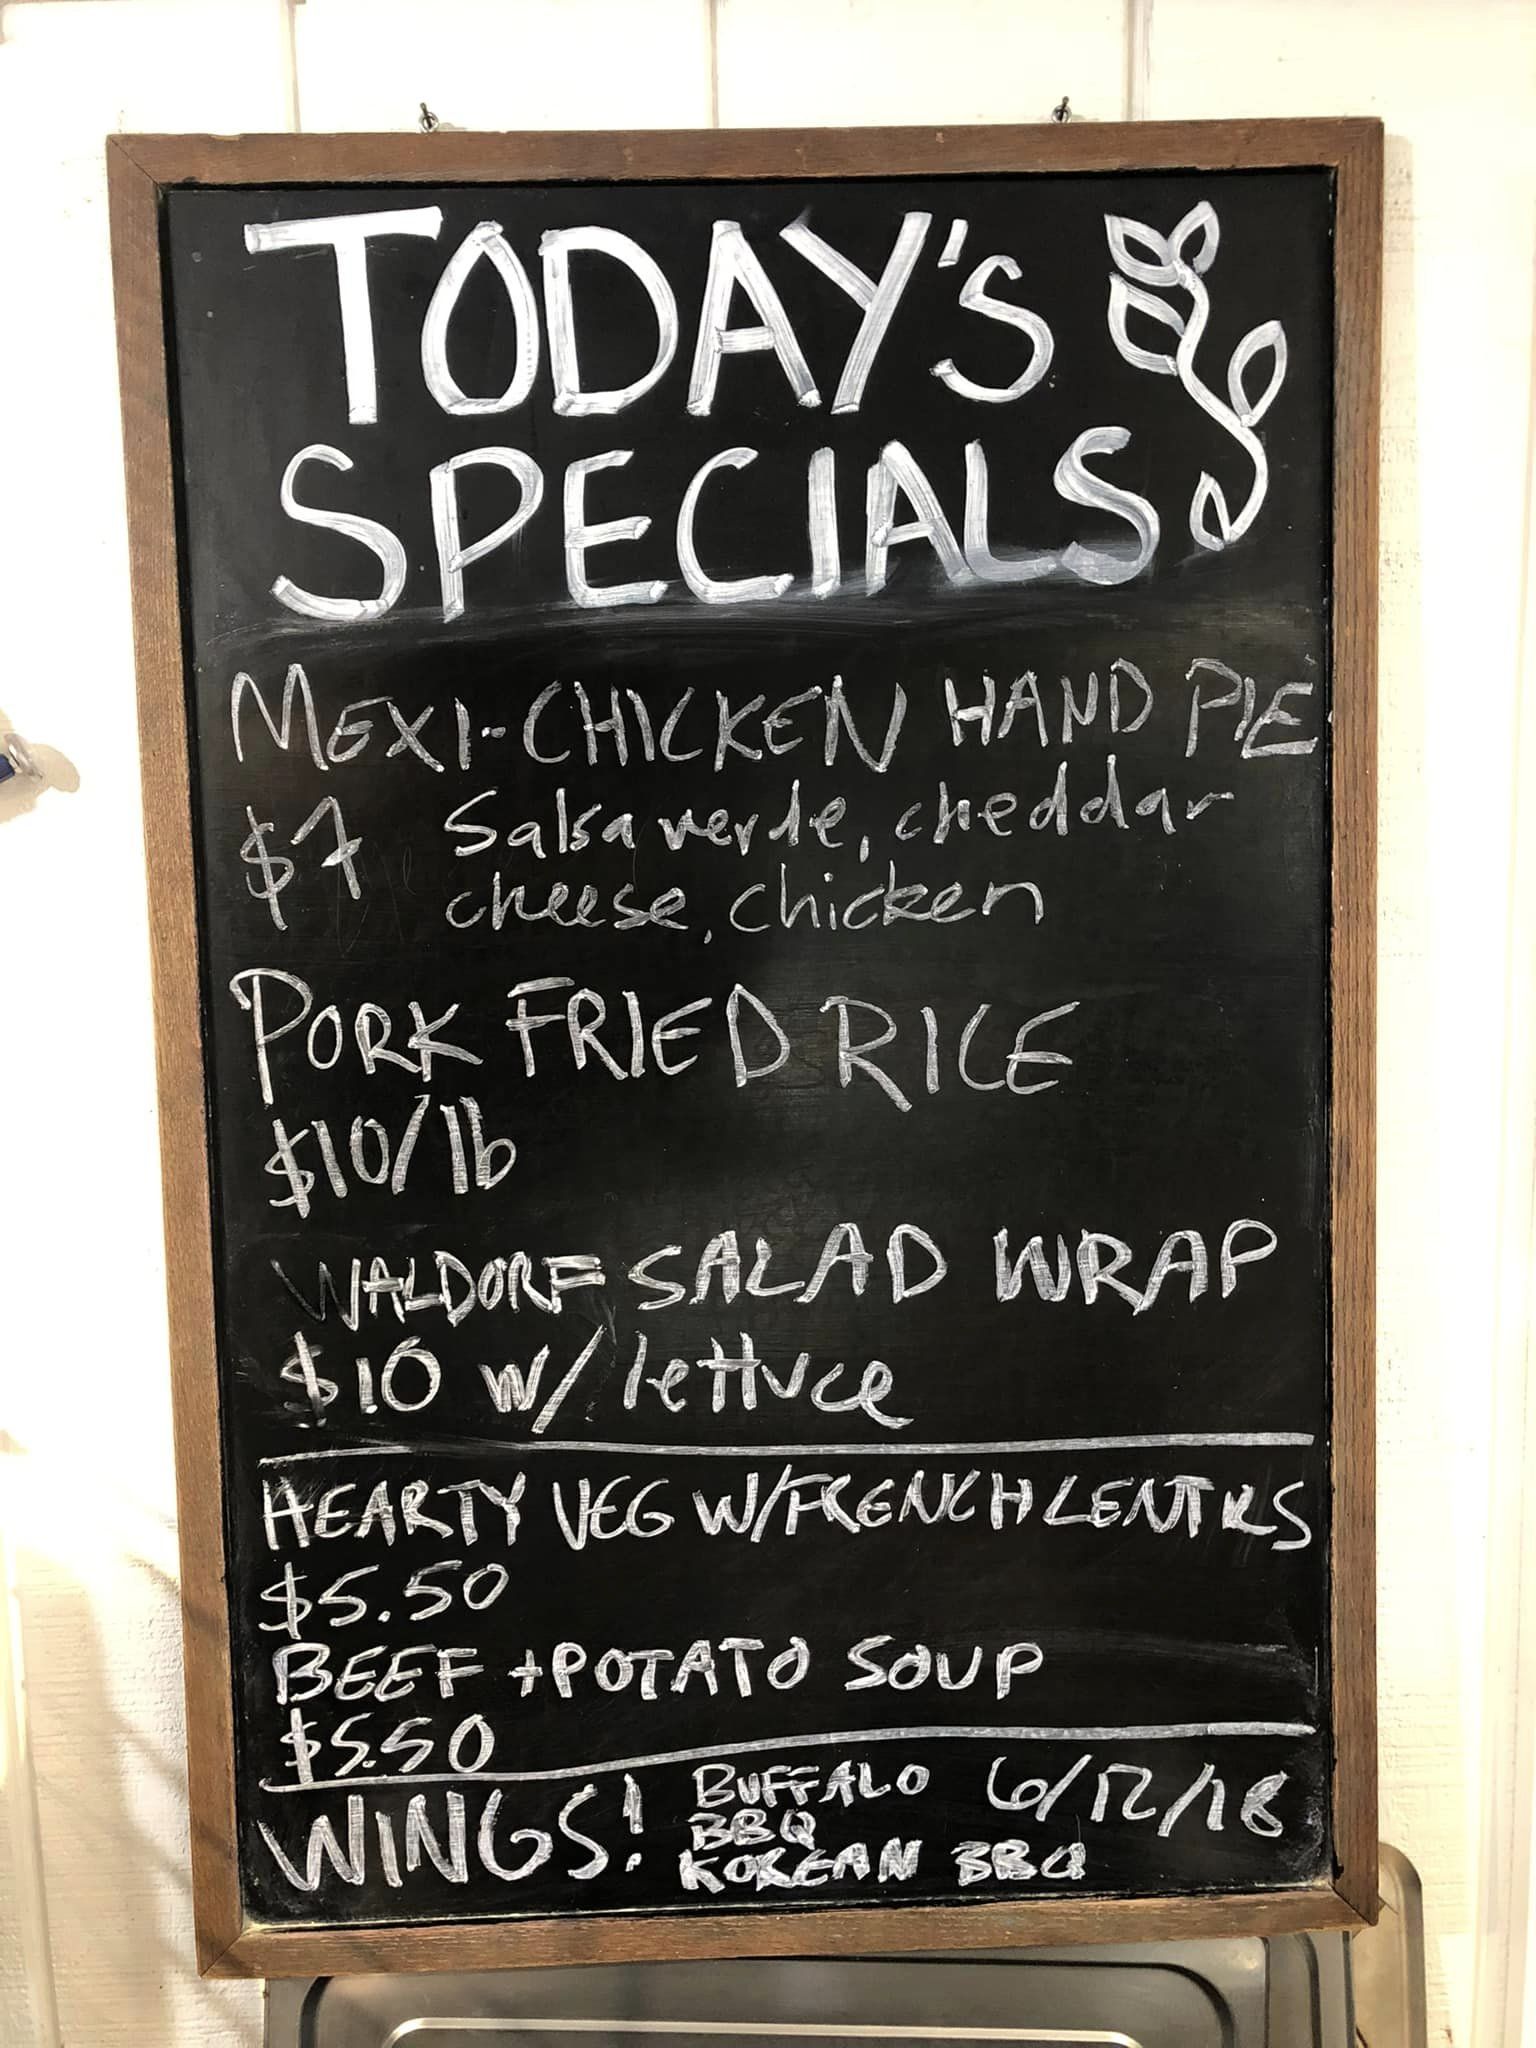 TODAY'S
SPECIALS
MEXI-CHICKEN HAND PIE
$7 Salsa verde, cheddar
cheese, chicken
PORK FRIED RICE
$10/lb
WALDORF SALAD WRAP
$10 w/ lettuce
HEARTY VEG W/FRENCH LENTILS
$5.50
BEEF + POTATO SOUP
$5.50
WINGS! BUFFALO 6/12/18
BBQ
KOREAN BBQ